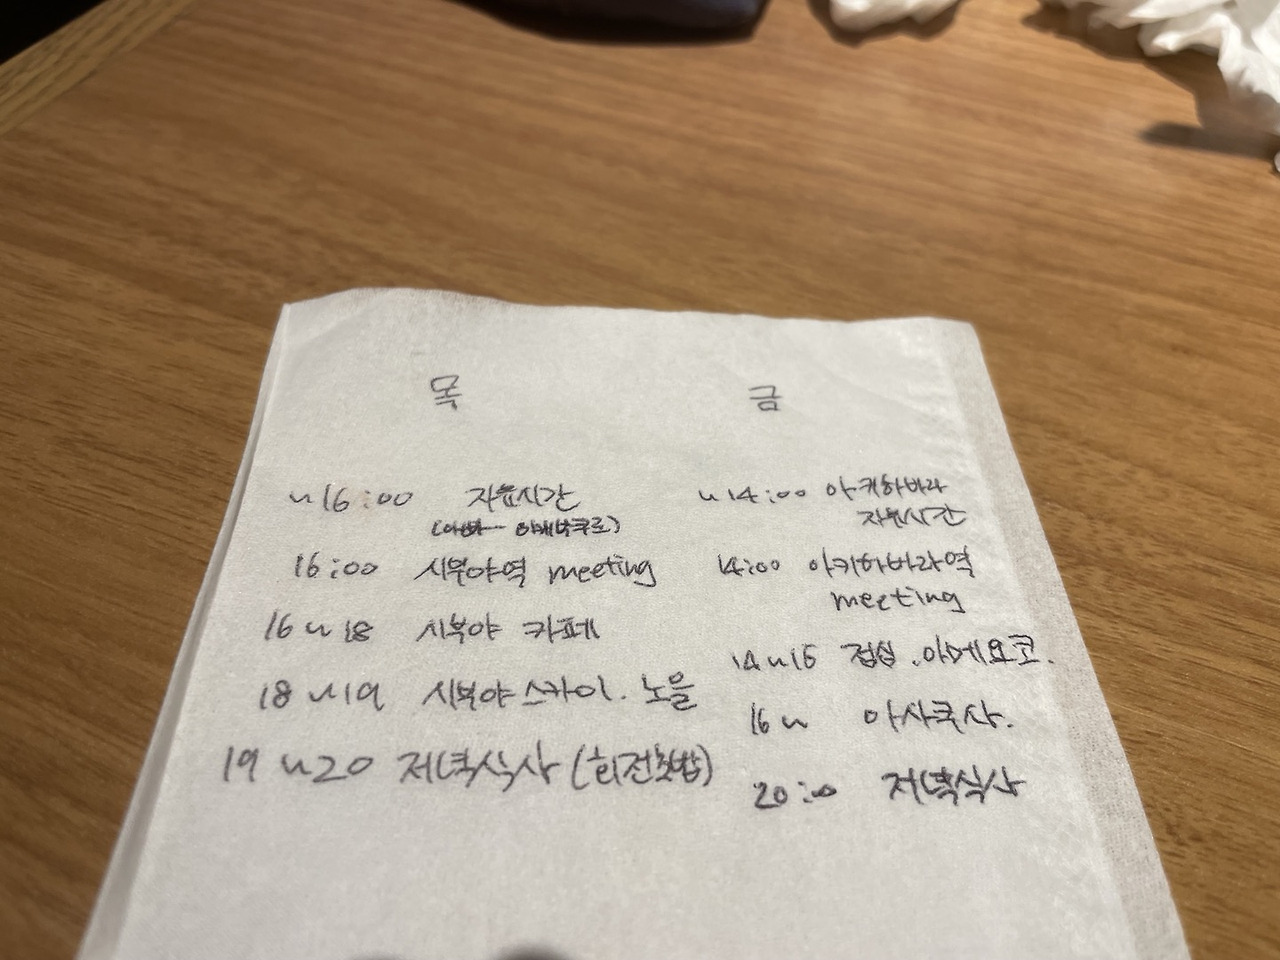 목
~16:00 자유시간
(아빠
16:00 시부야역 meeting
16~18 시부야 카페
18~19 시부야스카이. 노을
19~20 저녁식사 (회전초밥)
금
~14:00 아키하바라
자유시간
14:00 아키하바라역
meeting
14~16 점심.아메요코.
16~ 아사쿠사.
20:00 저녁식사